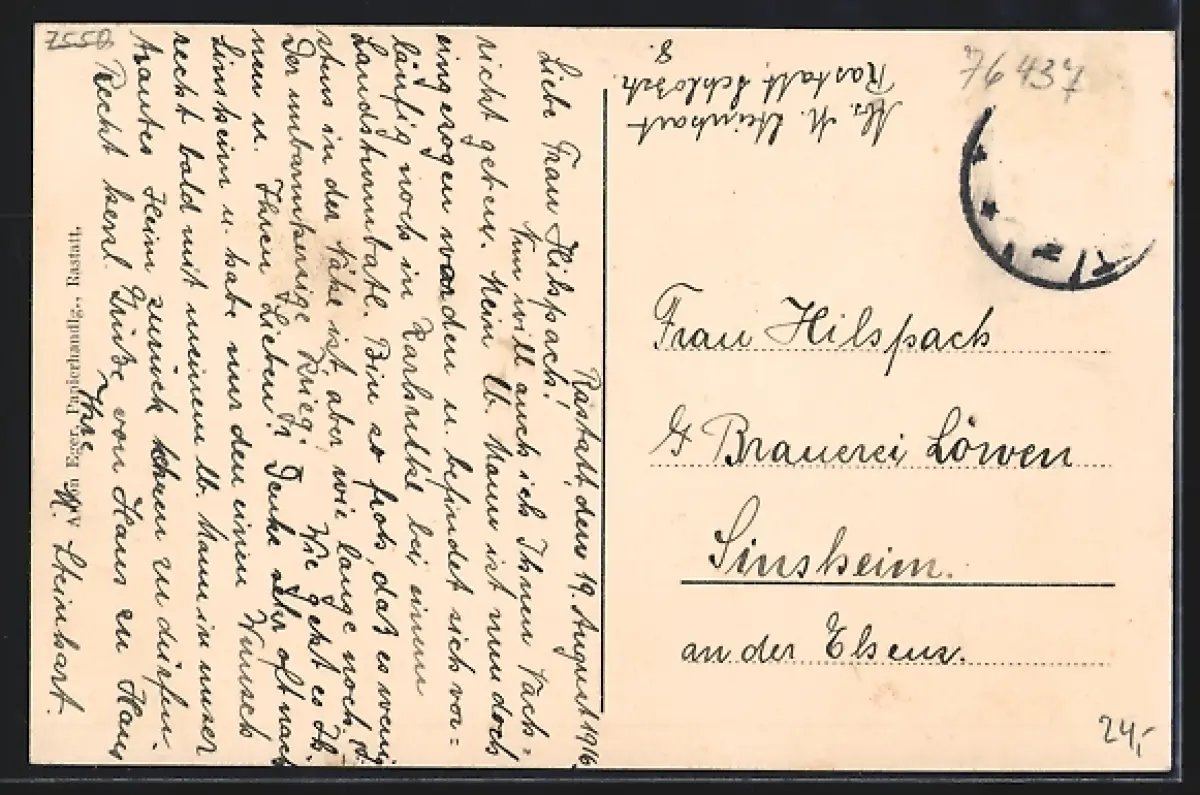 Rastatt, den 19. August 1916.
Liebe Frau Hilspach!
Nun will auch ich Ihnen Nach=
richt geben. Mein lb. Mann ist nun doch
eingezogen worden u. befindet sich vor=
läufig noch in Karlsruhe bei einem
Landsturmbatl. Bin so froh, daß es wenig
stens in der Nähe ist aber wie lange noch?
Der unbarmherzige Krieg! Wie geht es Ih=
nen u. Ihren Lieben? Denke sehr oft nach
Sinsheim u. habe nur den einen Wunsch
recht bald mit meinem lb. Mann in unser
trautes Heim zurück zu dürfen.
Recht herzl. Grüße von Haus zu Haus
Ihre
M. Steinhart.
Abs. M. Steinhart
Rastatt, Schlossstr.
8.
Frau Hilspach
Brauerei Löwen
Sinsheim.
an der Elsenz.
7550
76 437
24,-
Papierhandlg., Rastatt.